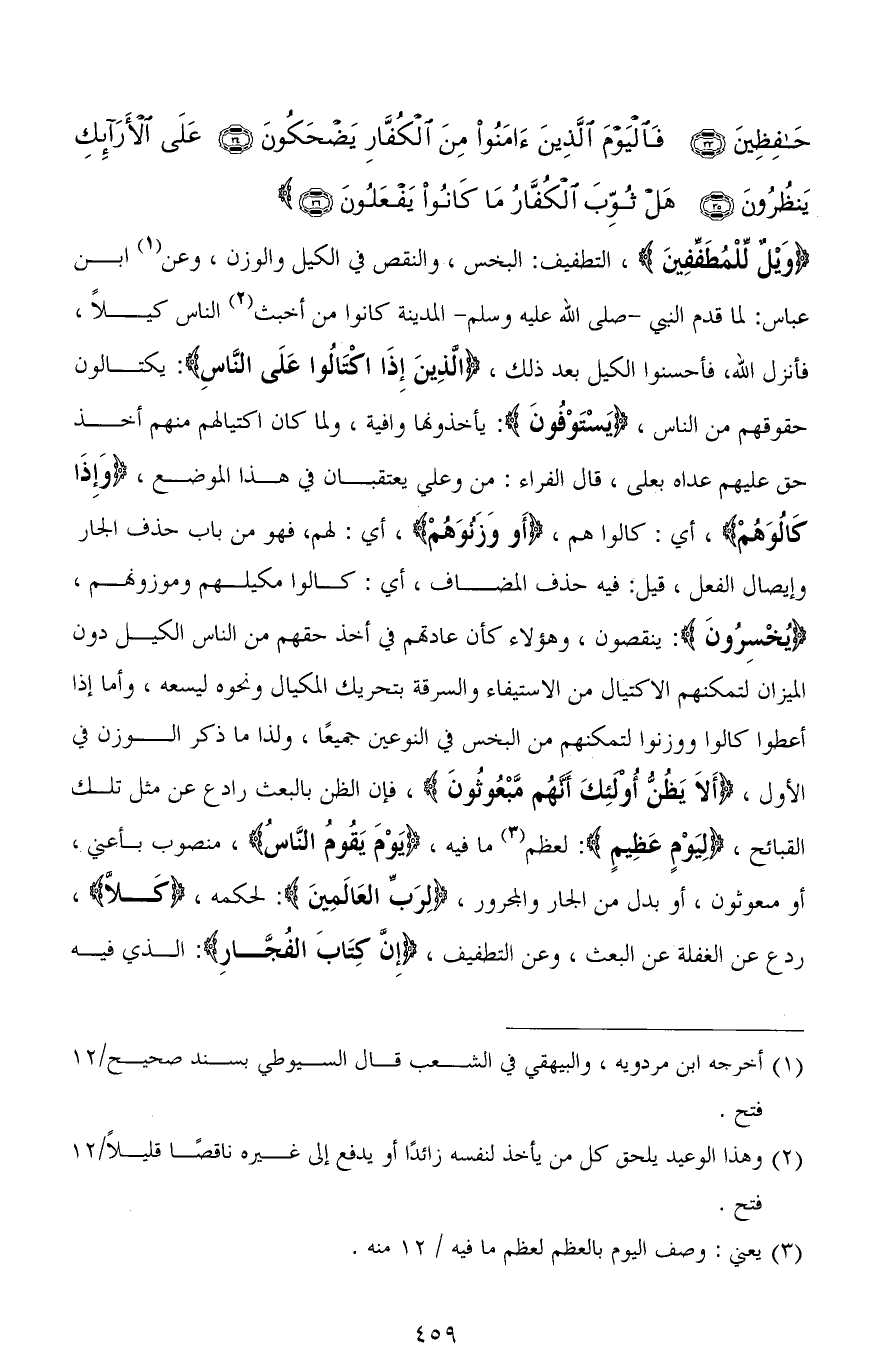 حَـٰفِظِينَ ﴿٣٣﴾ فَٱلْيَوْمَ ٱلَّذِينَ ءَامَنُوا۟ مِنَ ٱلْكُفَّارِ يَضْحَكُونَ ﴿٣٤﴾ عَلَى ٱلْأَرَآئِكِ
يَنظُرُونَ ﴿٣٥﴾ هَلْ ثُوِّبَ ٱلْكُفَّارُ مَا كَانُوا۟ يَفْعَلُونَ ﴿٣٦﴾ ﴾
﴿وَيْلٌ لِّلْمُطَفِّفِينَ ﴾ ، التطفيف: البخس ، والنقص في الكيل والوزن ، وعن(١) ابن
عباس: لما قدم النبي -صلى الله عليه وسلم- المدينة كانوا من أخبث(٢) الناس كيلاً ،
فأنزل الله، فأحسنوا الكيل بعد ذلك ، ﴿الَّذِينَ إِذَا اكْتَالُوا عَلَى النَّاسِ﴾: يكتالون
حقوقهم من الناس ، ﴿يَسْتَوْفُونَ ﴾: يأخذونها وافية ، ولما كان اكتيالهم منهم أخذ
حق عليهم عداه بعلى ، قال الفراء : من وعلي يعتقبان في هذا الموضع ، ﴿وَإِذَا
كَالُوَهُمْ﴾ ، أي : كالوا هم ، ﴿أَو وَزَنُوَهُمْ﴾ ، أي : لهم، فهو من باب حذف الجار
وإيصال الفعل ، قيل: فيه حذف المضاف ، أي : كالوا مكيلهم وموزونهم ،
﴿يُخْسِرُونَ ﴾: ينقصون ، وهؤلاء كأن عادتهم في أخذ حقهم من الناس الكيل دون
الميزان لتمكنهم الاكتيال من الاستيفاء والسرقة بتحريك المكيال ونحوه ليسعه ، وأما إذا
أعطوا كالوا ووزنوا لتمكنهم من البخس في النوعين جميعًا ، ولذا ما ذكر الوزن في
الأول ، ﴿أَلاَ يَظُنُّ أُوْلَئِكَ أَنَّهُم مَّبْعُوثُونَ ﴾ ، فإن الظن بالبعث رادع عن مثل تلك
القبائح ، ﴿لِيَوْمٍ عَظِيمٍ ﴾: لعظم(٣) ما فيه ، ﴿يَوْمَ يَقُومُ النَّاسُ﴾ ، منصوب بأعني ،
أو مبعوثون ، أو بدل من الجار والمجرور ، ﴿لِرَبِّ العَالَمِينَ ﴾: لحكمه ، ﴿كَلاَّ﴾ ،
ردع عن الغفلة عن البعث ، وعن التطفيف ، ﴿إِنَّ كِتَابَ الفُجَّارِ﴾: الذي فيه
(١) أخرجه ابن مردويه ، والبيهقي في الشعب قال السيوطي بسند صحيح/١٢
فتح .
(٢) وهذا الوعيد يلحق كل من يأخذ لنفسه زائدًا أو يدفع إلى غيره ناقصًا قليلاً/١٢
فتح .
(٣) يعني : وصف اليوم بالعظم لعظم ما فيه / ١٢ منه .
٤٥٩